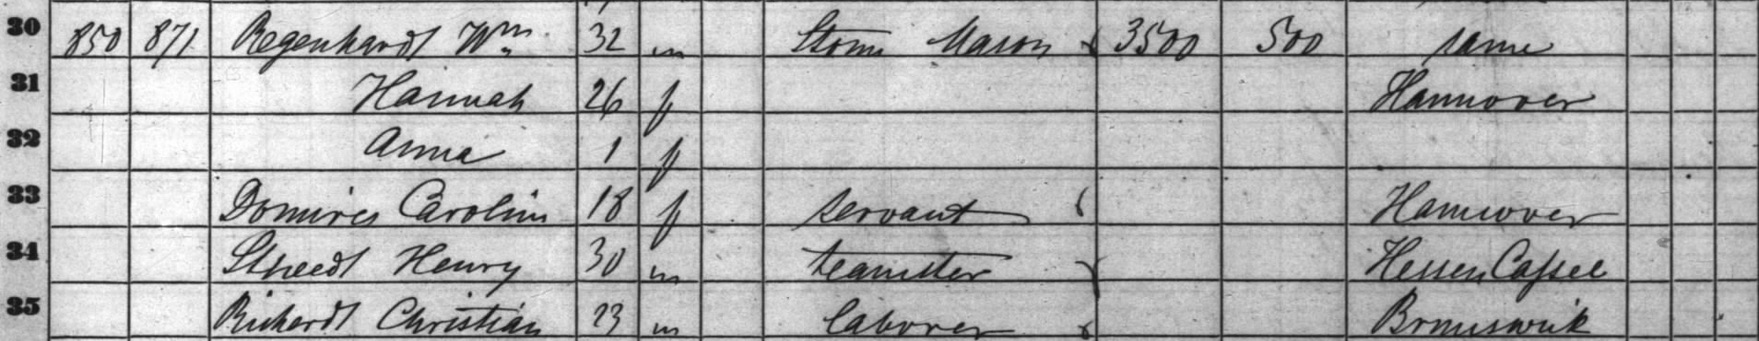 30 850 871 Regenhardt Wm 32 m Stone Mason 3500 500 same
31 Hannah 26 f Hannover
32 Anna 1 f
33 Carolin 18 f servant Hannover
34 Henry 30 m teamster Hessen Cassel
35 Richardt Christian 23 m laborer Brunswick